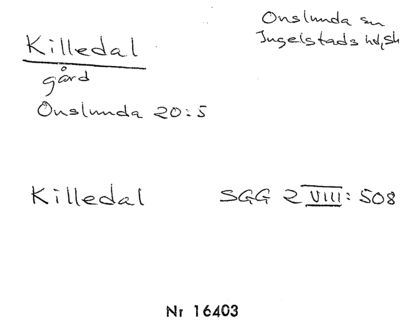 Killedal
Onslunda sn
Ingelstads hd, Sk
gård
Onslunda 20:5
Killedal SGG 2 VIII: 508
Nr 16403